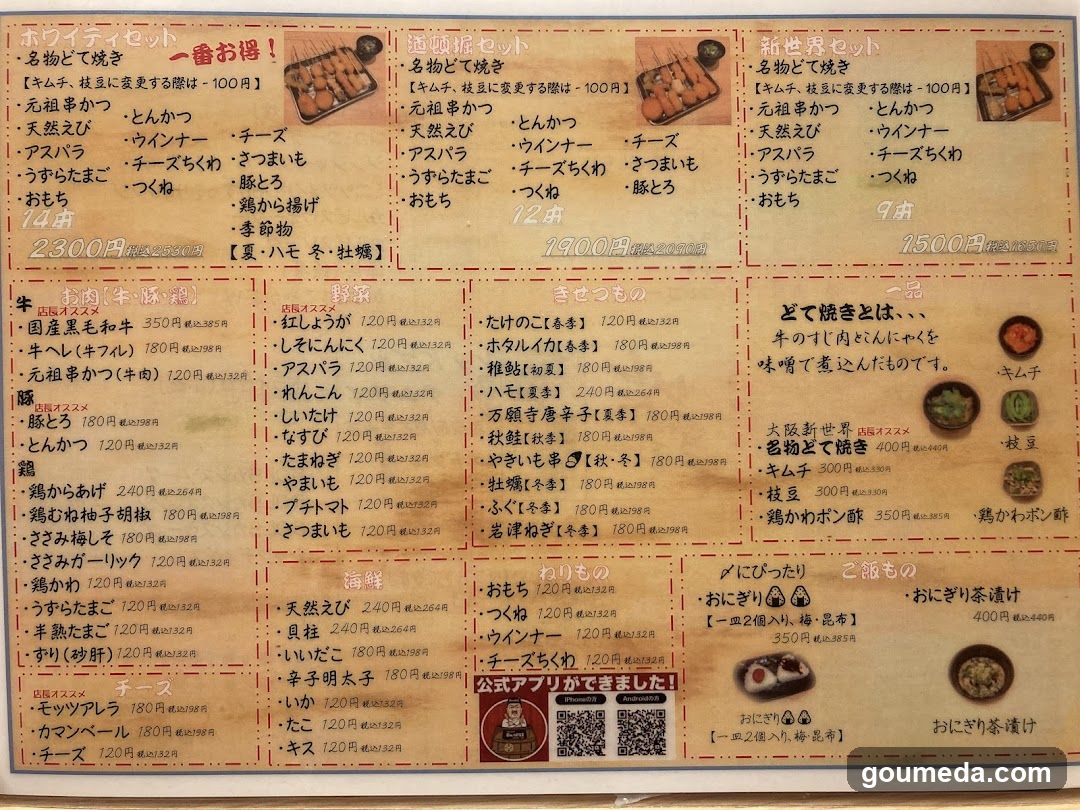 ホワイティセット
一番お得！
・名物どて焼き
【キムチ、枝豆に変更する際は－100円】
・元祖串かつ
・天然えび
・アスパラ
・うずらたまご
・おもち
・とんかつ
・ウインナー
・チーズちくわ
・つくね
・チーズ
・さつまいも
・豚とろ
・鶏から揚げ
・季節物
【夏・ハモ 冬・牡蠣】
14本
2300円税込2530円
道頓堀セット
・名物どて焼き
【キムチ、枝豆に変更する際は－100円】
・元祖串かつ
・天然えび
・アスパラ
・うずらたまご
・おもち
・とんかつ
・ウインナー
・チーズちくわ
・つくね
・チーズ
・さつまいも
・豚とろ
12本
1900円税込2090円
新世界セット
・名物どて焼き
【キムチ、枝豆に変更する際は－100円】
・元祖串かつ
・天然えび
・アスパラ
・うずらたまご
・おもち
・とんかつ
・ウインナー
・チーズちくわ
・つくね
9本
1500円税込1650円
お肉【牛・豚・鶏】
牛
店長オススメ
・国産黒毛和牛 350円税込385円
・牛ヘレ(牛フィレ) 180円税込198円
・元祖串かつ(牛肉) 120円税込132円
豚
店長オススメ
・豚とろ 180円税込198円
・とんかつ 120円税込132円
鶏
・鶏からあげ 240円税込264円
・鶏むね柚子胡椒 180円税込198円
・ささみ梅しそ 180円税込198円
・ささみガーリック 120円税込132円
・鶏かわ 120円税込132円
・うずらたまご 120円税込132円
・半熟たまご 120円税込132円
・ずり(砂肝) 120円税込132円
チーズ
店長オススメ
・モッツアレラ 180円税込198円
・カマンベール 180円税込198円
・チーズ 120円税込132円
野菜
店長オススメ
・紅しょうが 120円税込132円
・しそにんにく 120円税込132円
・アスパラ 120円税込132円
・れんこん 120円税込132円
・しいたけ 120円税込132円
・なすび 120円税込132円
・たまねぎ 120円税込132円
・やまいも 120円税込132円
・プチトマト 120円税込132円
・さつまいも 120円税込132円
海鮮
・天然えび 240円税込264円
・貝柱 240円税込264円
・いいだこ 180円税込198円
・辛子明太子 180円税込198円
・いか 120円税込132円
・たこ 120円税込132円
・キス 120円税込132円
きせつもの
・たけのこ【春季】 120円税込132円
・ホタルイカ【春季】 180円税込198円
・稚鮎【初夏】 180円税込198円
・ハモ【夏季】 240円税込264円
・万願寺唐辛子【夏季】 180円税込198円
・秋鮭【秋季】 180円税込198円
・やきいも串🍠【秋・冬】 180円税込198円
・牡蠣【冬季】 180円税込198円
・ふぐ【冬季】 180円税込198円
・岩津ねぎ【冬季】 180円税込198円
ねりもの
・おもち 120円税込132円
・つくね 120円税込132円
・ウインナー 120円税込132円
・チーズちくわ 120円税込132円
公式アプリができました！
iPhoneの方
Androidの方
一品
どて焼きとは、、、
牛のすじ肉とこんにゃくを
味噌で煮込んだものです。
大阪新世界 店長オススメ
名物どて焼き 400円税込440円
・キムチ 300円税込330円
・枝豆 300円税込330円
・鶏かわポン酢 350円税込385円
・キムチ
・枝豆
・鶏かわポン酢
ご飯もの
〆にぴったり
・おにぎり🍙🍙
【一皿2個入り、梅・昆布】
350円税込385円
・おにぎり茶漬け
400円税込440円
おにぎり🍙🍙
【一皿2個入り、梅・昆布】
おにぎり茶漬け
goumeda.com